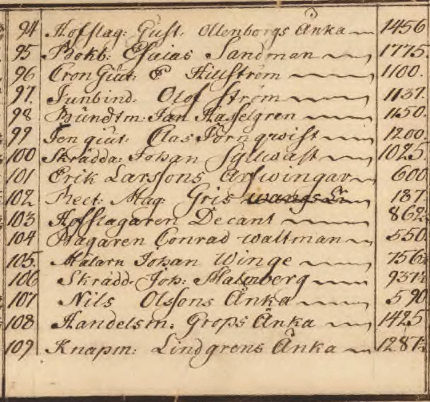 94 Hofslag: Gust. Ollenborgs Änka 1456
95 Bokb: Esaias Sandman 1775
96 Cron Giut: E Hillström 1100
97. Tunbind. Olof Ström 1137
98 Bundtm: Jan Hasselgren 1150
99 Ten giut: Clas Törnqwist 1200
100 Skrädda: Johan Syllwast 1025
101 Erik Larssons Arfwingar 600
102 Rect: Mag: Gris 187
103 Hofslagaren Decant 862
104 Bagaren Conrad Waltman 550
105. Målarn Johan Winge 756
106 Skrädd: Joh: Malmberg 937
107 Nils Olssons Änka 590
108 Handelsm: Grops Änka 1425
109 Knapm: Lindgrens Änka 1287